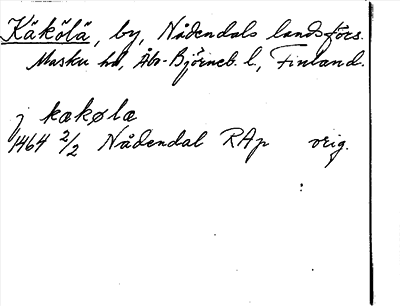 Käkölä, by, Nådendals landsförs.
Masku hd, Åbo-Björneb. l., Finland.
j kækøla
1464 2/2 Nådendal RAp orig.